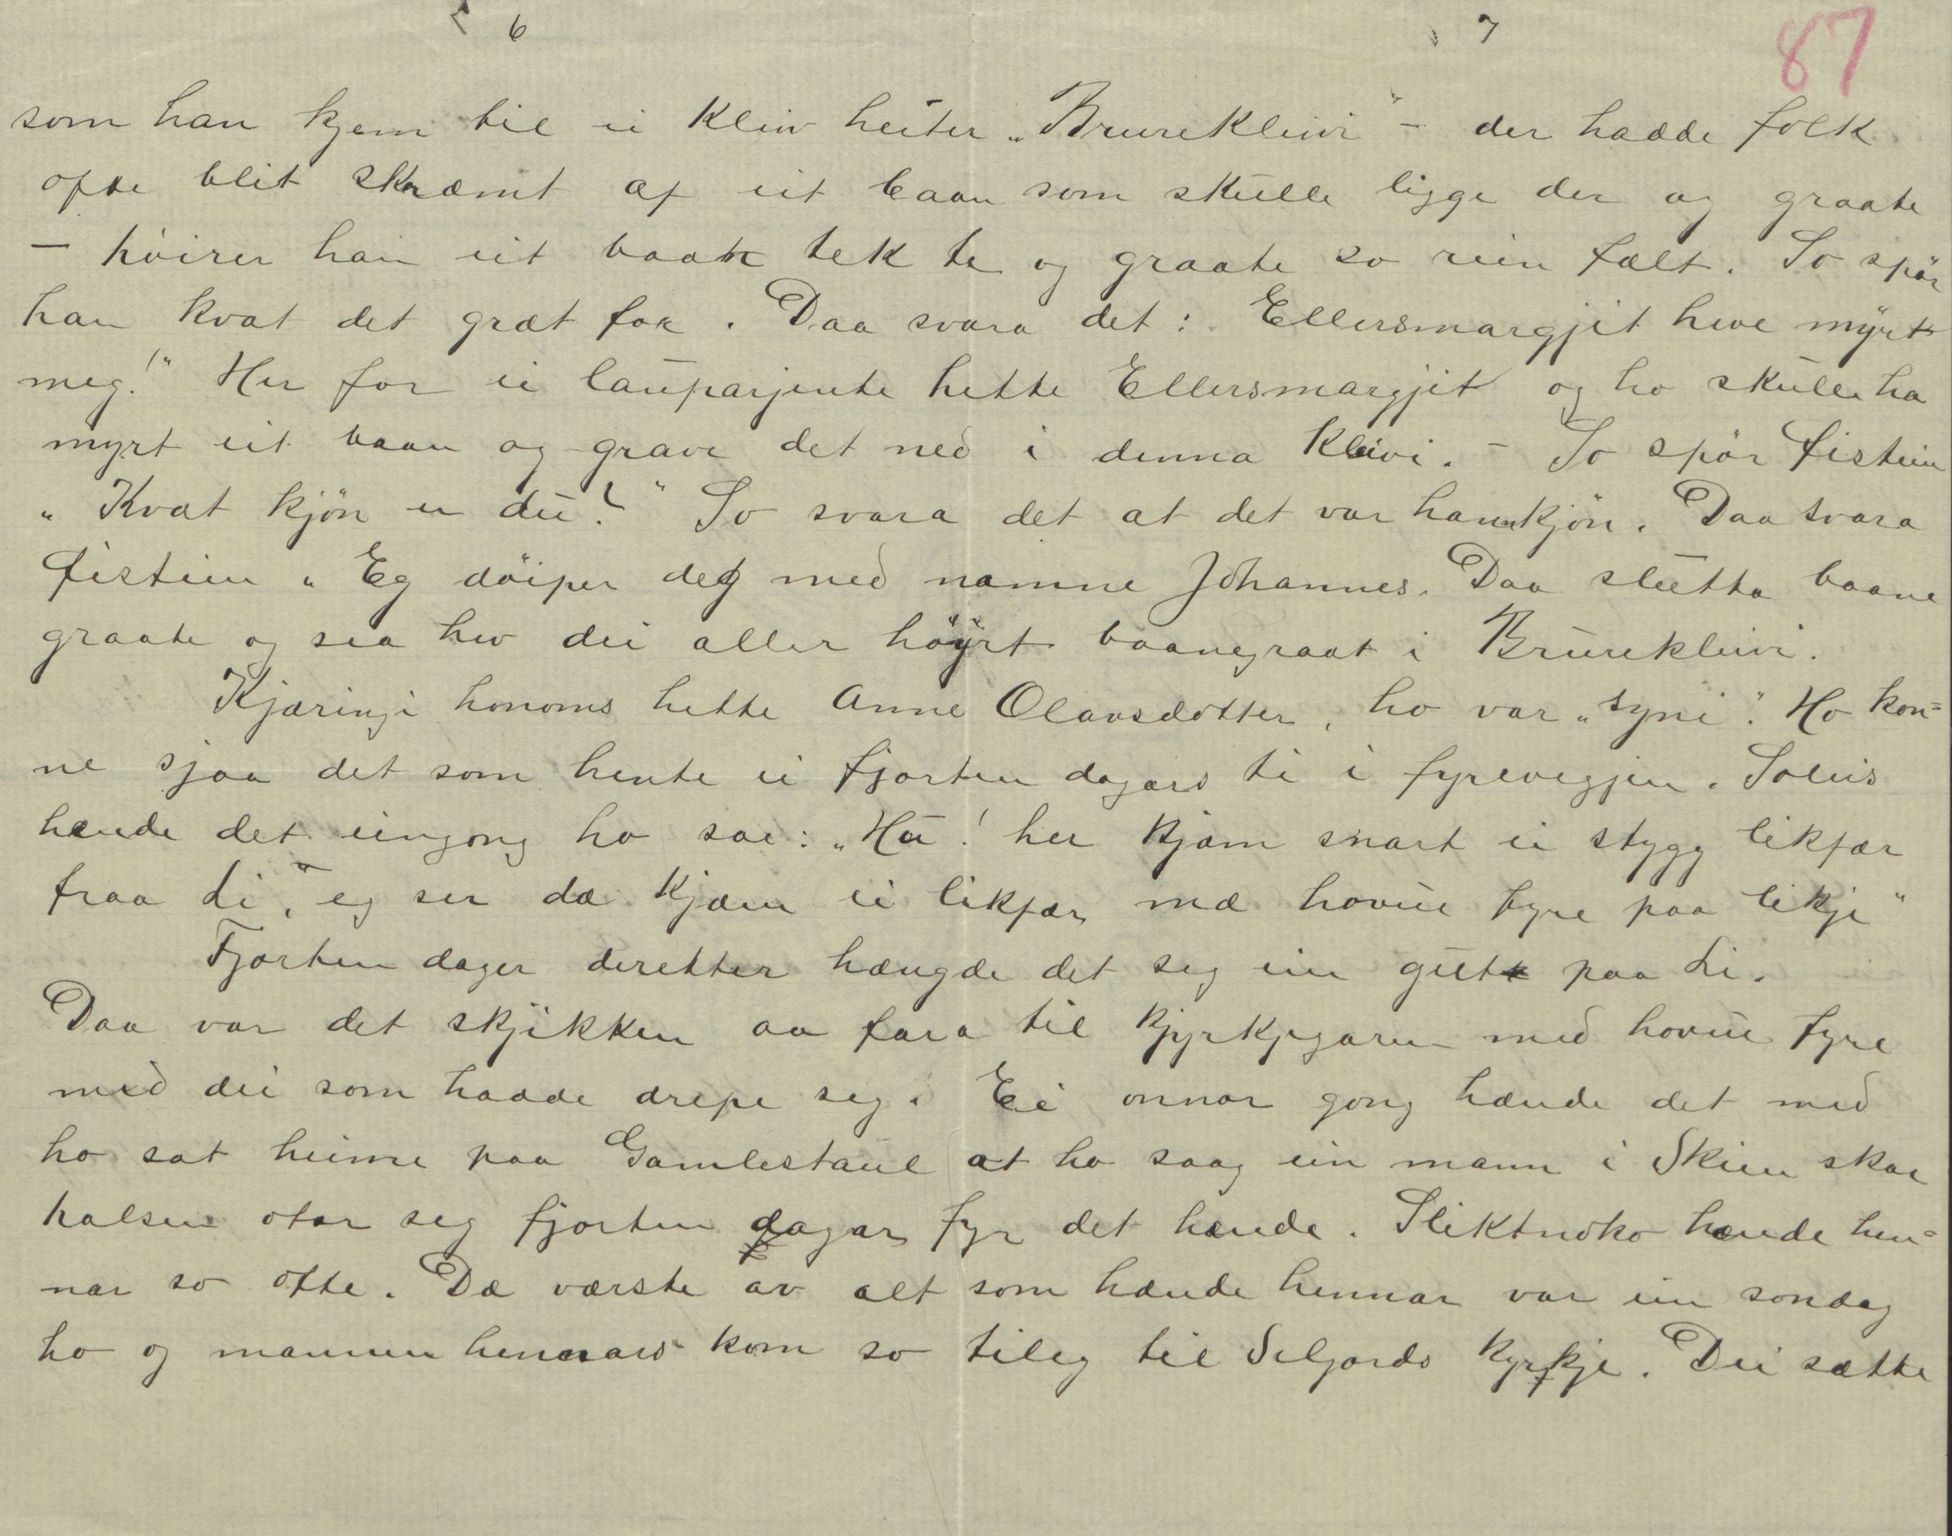 6 7 87
som han kjem til ei kleiv heiter „Brurekleivi" – der hadde folk
ofte blit skræmt af eit baan som skulle ligge der og graate
– høirer han eit baan tek te og graate so rein fælt. So spør
han kvat det græt for. Daa svara det: Ellersmargjit heve myrt
meg!" Her for ei lauparjente hette Ellersmargjit og ho skulle ha
myrt eit baan og grave det ned i denna kleivi. – So spør Eistein
„Kvat kjøn er du?" So svara det at det var hannkjøn. Daa svara
Eistein „Eg døiper deg med namne Johannes. Daa slutta baane
graate og sea hev dei aller høyrt baanegraat i Brurekleivi.
Kjæringi honoms hette Anne Olavsdotter, ho var „syni". Ho kon=
ne sjaa det som hente ei fjorten dagars ti i fyrevegjen. Soleis
hænde det eingong ho sae: „Hu! her kjæm snart ei stygg likfær
fraa Li, eg ser dæ kjæm ei likfær mæ hovue fyre paa likje"
Fjorten dager deretter hængde det seg ein gut paa Li.
Daa var det skjikken aa fara til kjyrkjegaren med hovue fyre
med dei som hadde drepe seg. Ei onnor gong hænde det med
ho sat heime paa Gamlestaul at ho saag ein mann i Skien skar
halsen otar seg fjorten dagar fyr det hænde. Sliktnoko hænde hen=
nar so ofte. Dæ værste av alt som hænde hennar var ein sondag
ho og mannen hennars kom so tileg til Seljords kyrkje. Dei sætte